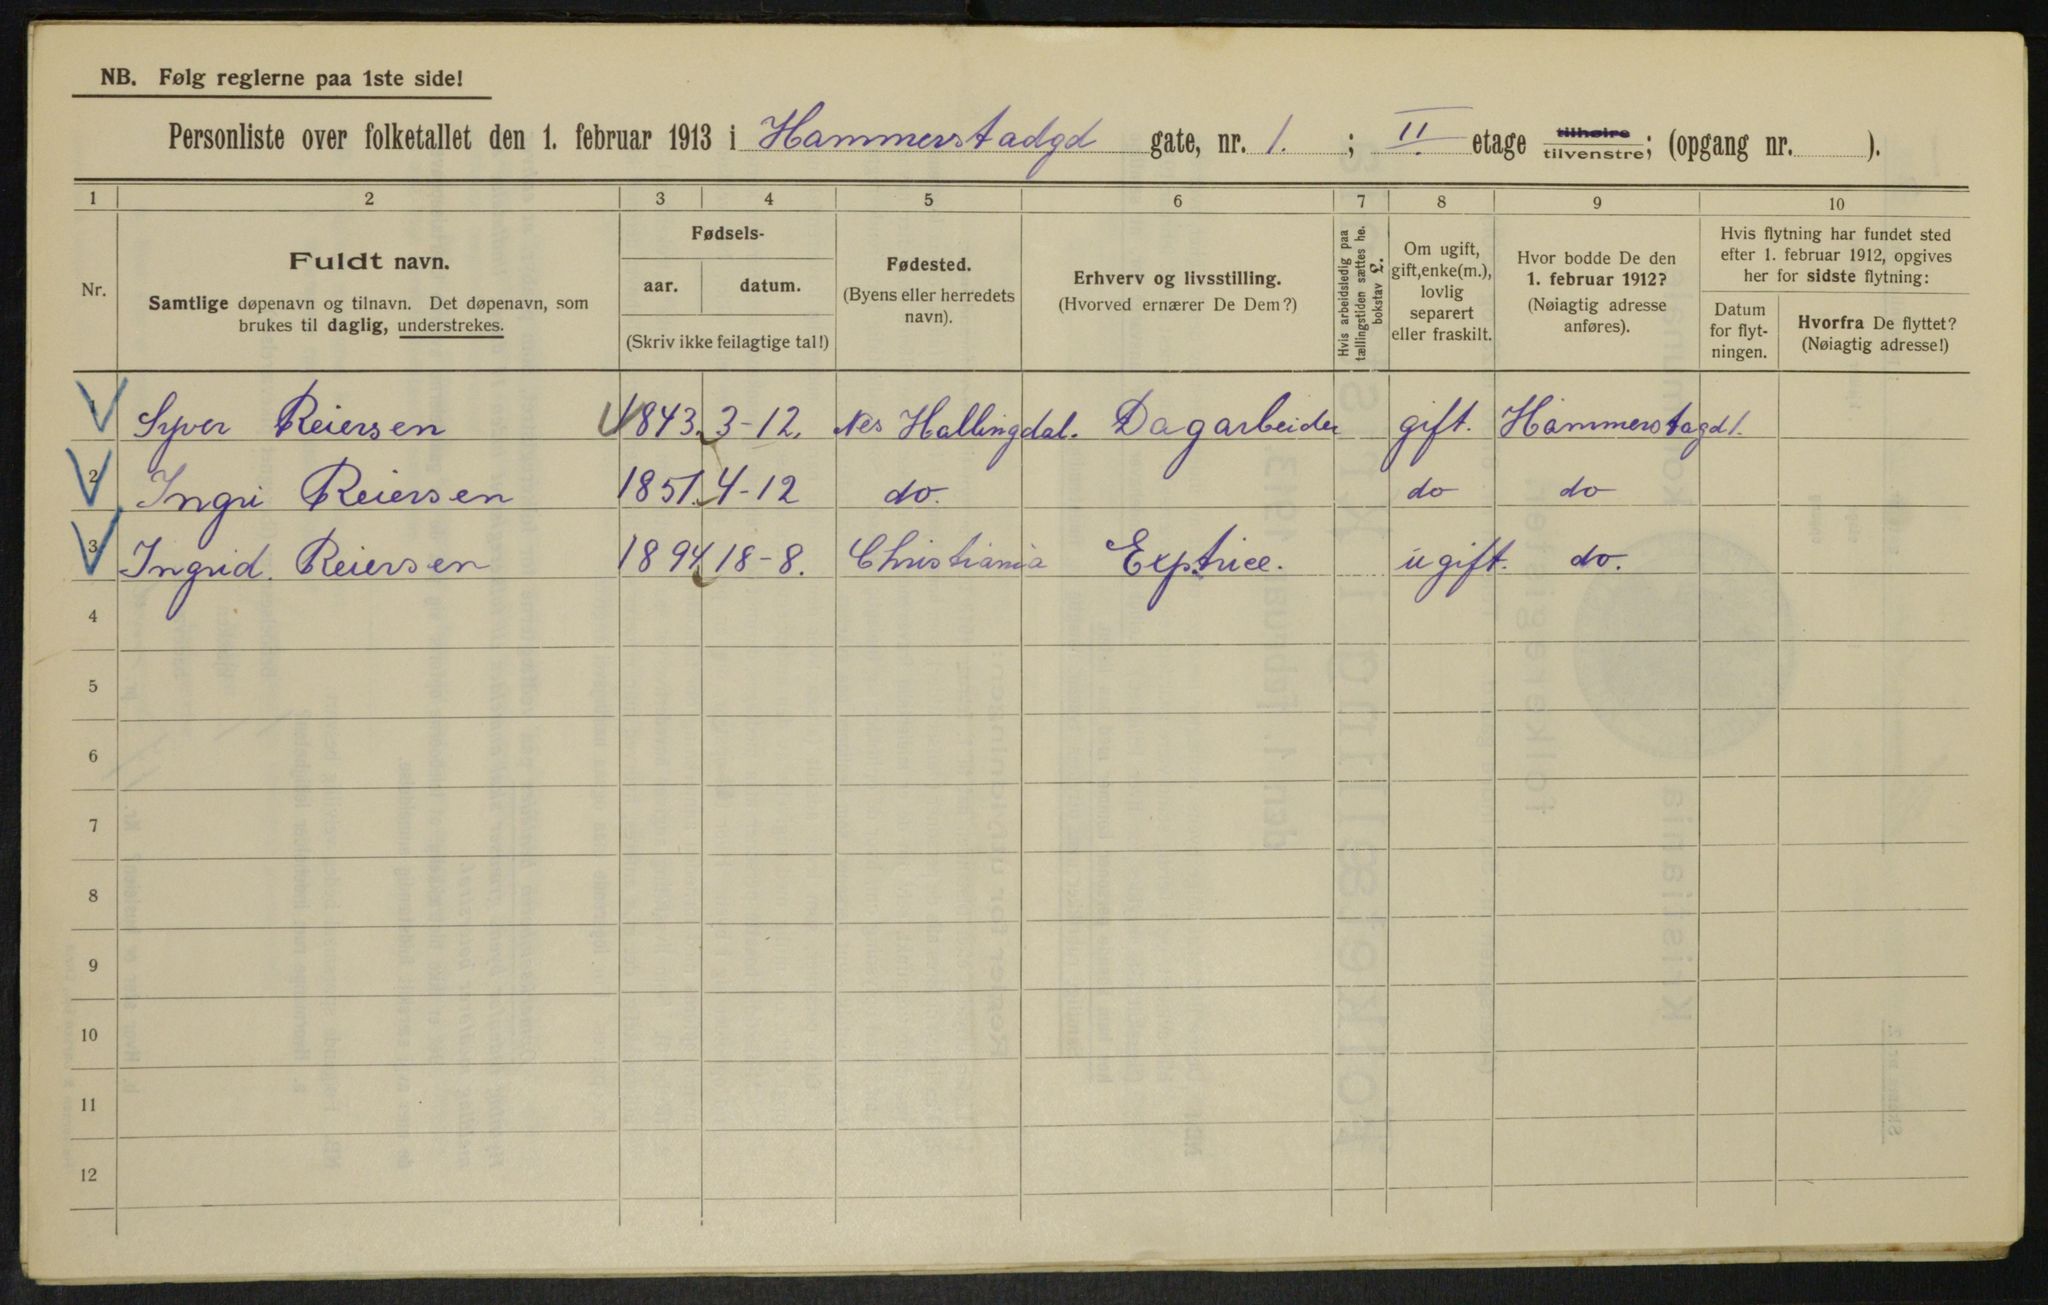 NB. Følg reglerne paa 1ste side!
Personliste over folketallet den 1. februar 1913 i Hammerstadgd gate, nr. 1. ; II. etage tilhøire tilvenstre; (opgang nr. ).
1 2 3 4 5 6 7 8 9 10
Nr.
Fuldt navn.
Samtlige døpenavn og tilnavn. Det døpenavn, som
brukes til daglig, understrekes.
Fødsels-
aar. datum.
(Skriv ikke feilagtige tal!)
Fødested.
(Byens eller herredets
navn).
Erhverv og livsstilling.
(Hvorved ernærer De Dem?)
Hvis arbeidsledig paa
tællingstiden sættes he.
bokstav L.
Om ugift,
gift, enke(m.),
lovlig
separert
eller fraskilt.
Hvor bodde De den
1. februar 1912?
(Nøiagtig adresse
anføres).
Hvis flytning har fundet sted
efter 1. februar 1912, opgives
her for sidste flytning:
Datum
for flyt-
ningen.
Hvorfra De flyttet?
(Nøiagtig adresse!)
1 Syver Reiersen 1843. 3-12. Nes Hallingdal. Dagarbeider gift. Hammerstagd 1.
2 Ingri Reiersen 1851. 4-12 do. do do
3 Ingrid. Reiersen 1894 18-8. Christiania Exptrice. ugift. do.
4
5
6
7
8
9
10
11
12